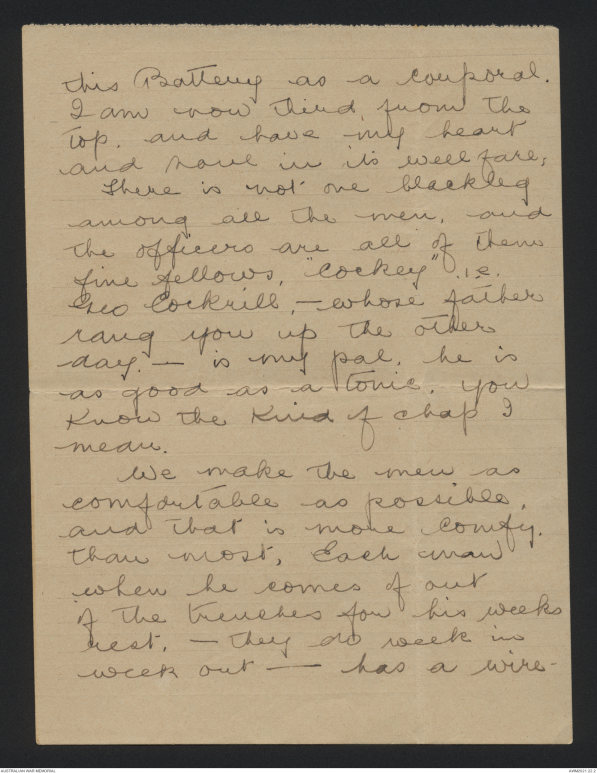 this Battery as a corporal.
I am now third from the
top, and have my heart
and soul in its wellfare,
There is not one blackleg
among all the men, and
the officers are all of them
fine fellows, "Cockey" i.e.
Geo Cockrill, — whose father
rang you up the other
day. — is my pal, he is
as good as a tonic, you
know the kind of chap I
mean.
We make the men as
comfortable as possible,
and that is more comfy.
than most, Each man
when he comes of out
of the trenches for his weeks
rest, — they do week in
week out — has a wire-
AUSTRALIAN WAR MEMORIAL
AWM2021.22.2